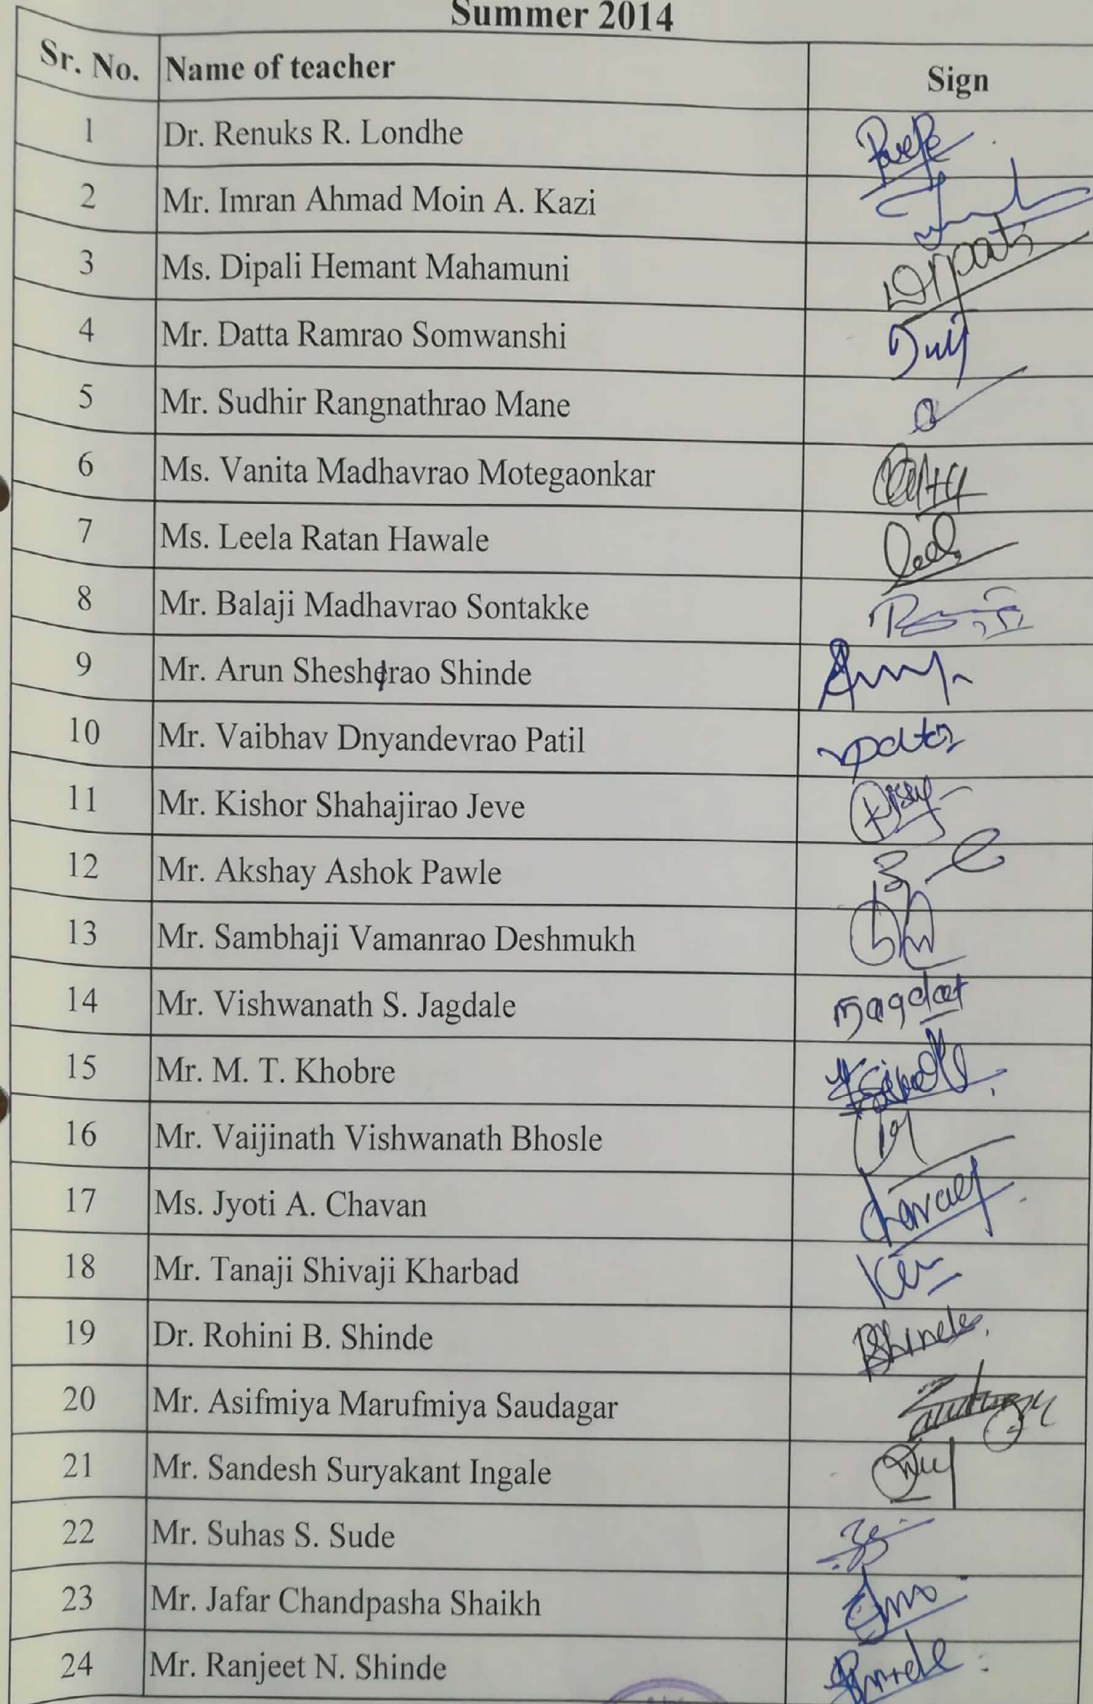 Summer 2014
Sr. No. Name of teacher Sign
1 Dr. Renuks R. Londhe
2 Mr. Imran Ahmad Moin A. Kazi
3 Ms. Dipali Hemant Mahamuni
4 Mr. Datta Ramrao Somwanshi
5 Mr. Sudhir Rangnathrao Mane
6 Ms. Vanita Madhavrao Motegaonkar
7 Ms. Leela Ratan Hawale
8 Mr. Balaji Madhavrao Sontakke
9 Mr. Arun Shesherao Shinde
10 Mr. Vaibhav Dnyandevrao Patil
11 Mr. Kishor Shahajirao Jeve
12 Mr. Akshay Ashok Pawle
13 Mr. Sambhaji Vamanrao Deshmukh
14 Mr. Vishwanath S. Jagdale
15 Mr. M. T. Khobre
16 Mr. Vaijinath Vishwanath Bhosle
17 Ms. Jyoti A. Chavan
18 Mr. Tanaji Shivaji Kharbad
19 Dr. Rohini B. Shinde
20 Mr. Asifmiya Marufmiya Saudagar
21 Mr. Sandesh Suryakant Ingale
22 Mr. Suhas S. Sude
23 Mr. Jafar Chandpasha Shaikh
24 Mr. Ranjeet N. Shinde